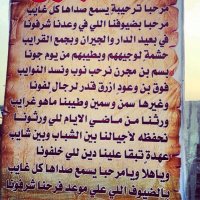 مرحبا ترحيبة يسمع صداها كل غايب
مرحبا بضيوفنا اللي في وعدنا شرفونا
في بعيد الدار والجيران ويجمع القرايب
حشمة لوجيههم وبطيبهم من يوم جونا
بسم بن مجرن نرحب نوب ونسد النوايب
فوق بن وعود ازرق قدر لرجال لفونا
وغيرها سمن وسمين وطيبنا ماهو غرايب
ورثنا من ماضي الايام للي ورثونا
نحفظه لأجيالنا بين الشباب وبين شايب
عهدة تبقا علينا دين للي خلفونا
وياهلا ويامرحبا يسمع صداها كل غايب
بالضيوف اللي على موعد فرحنا شرفونا